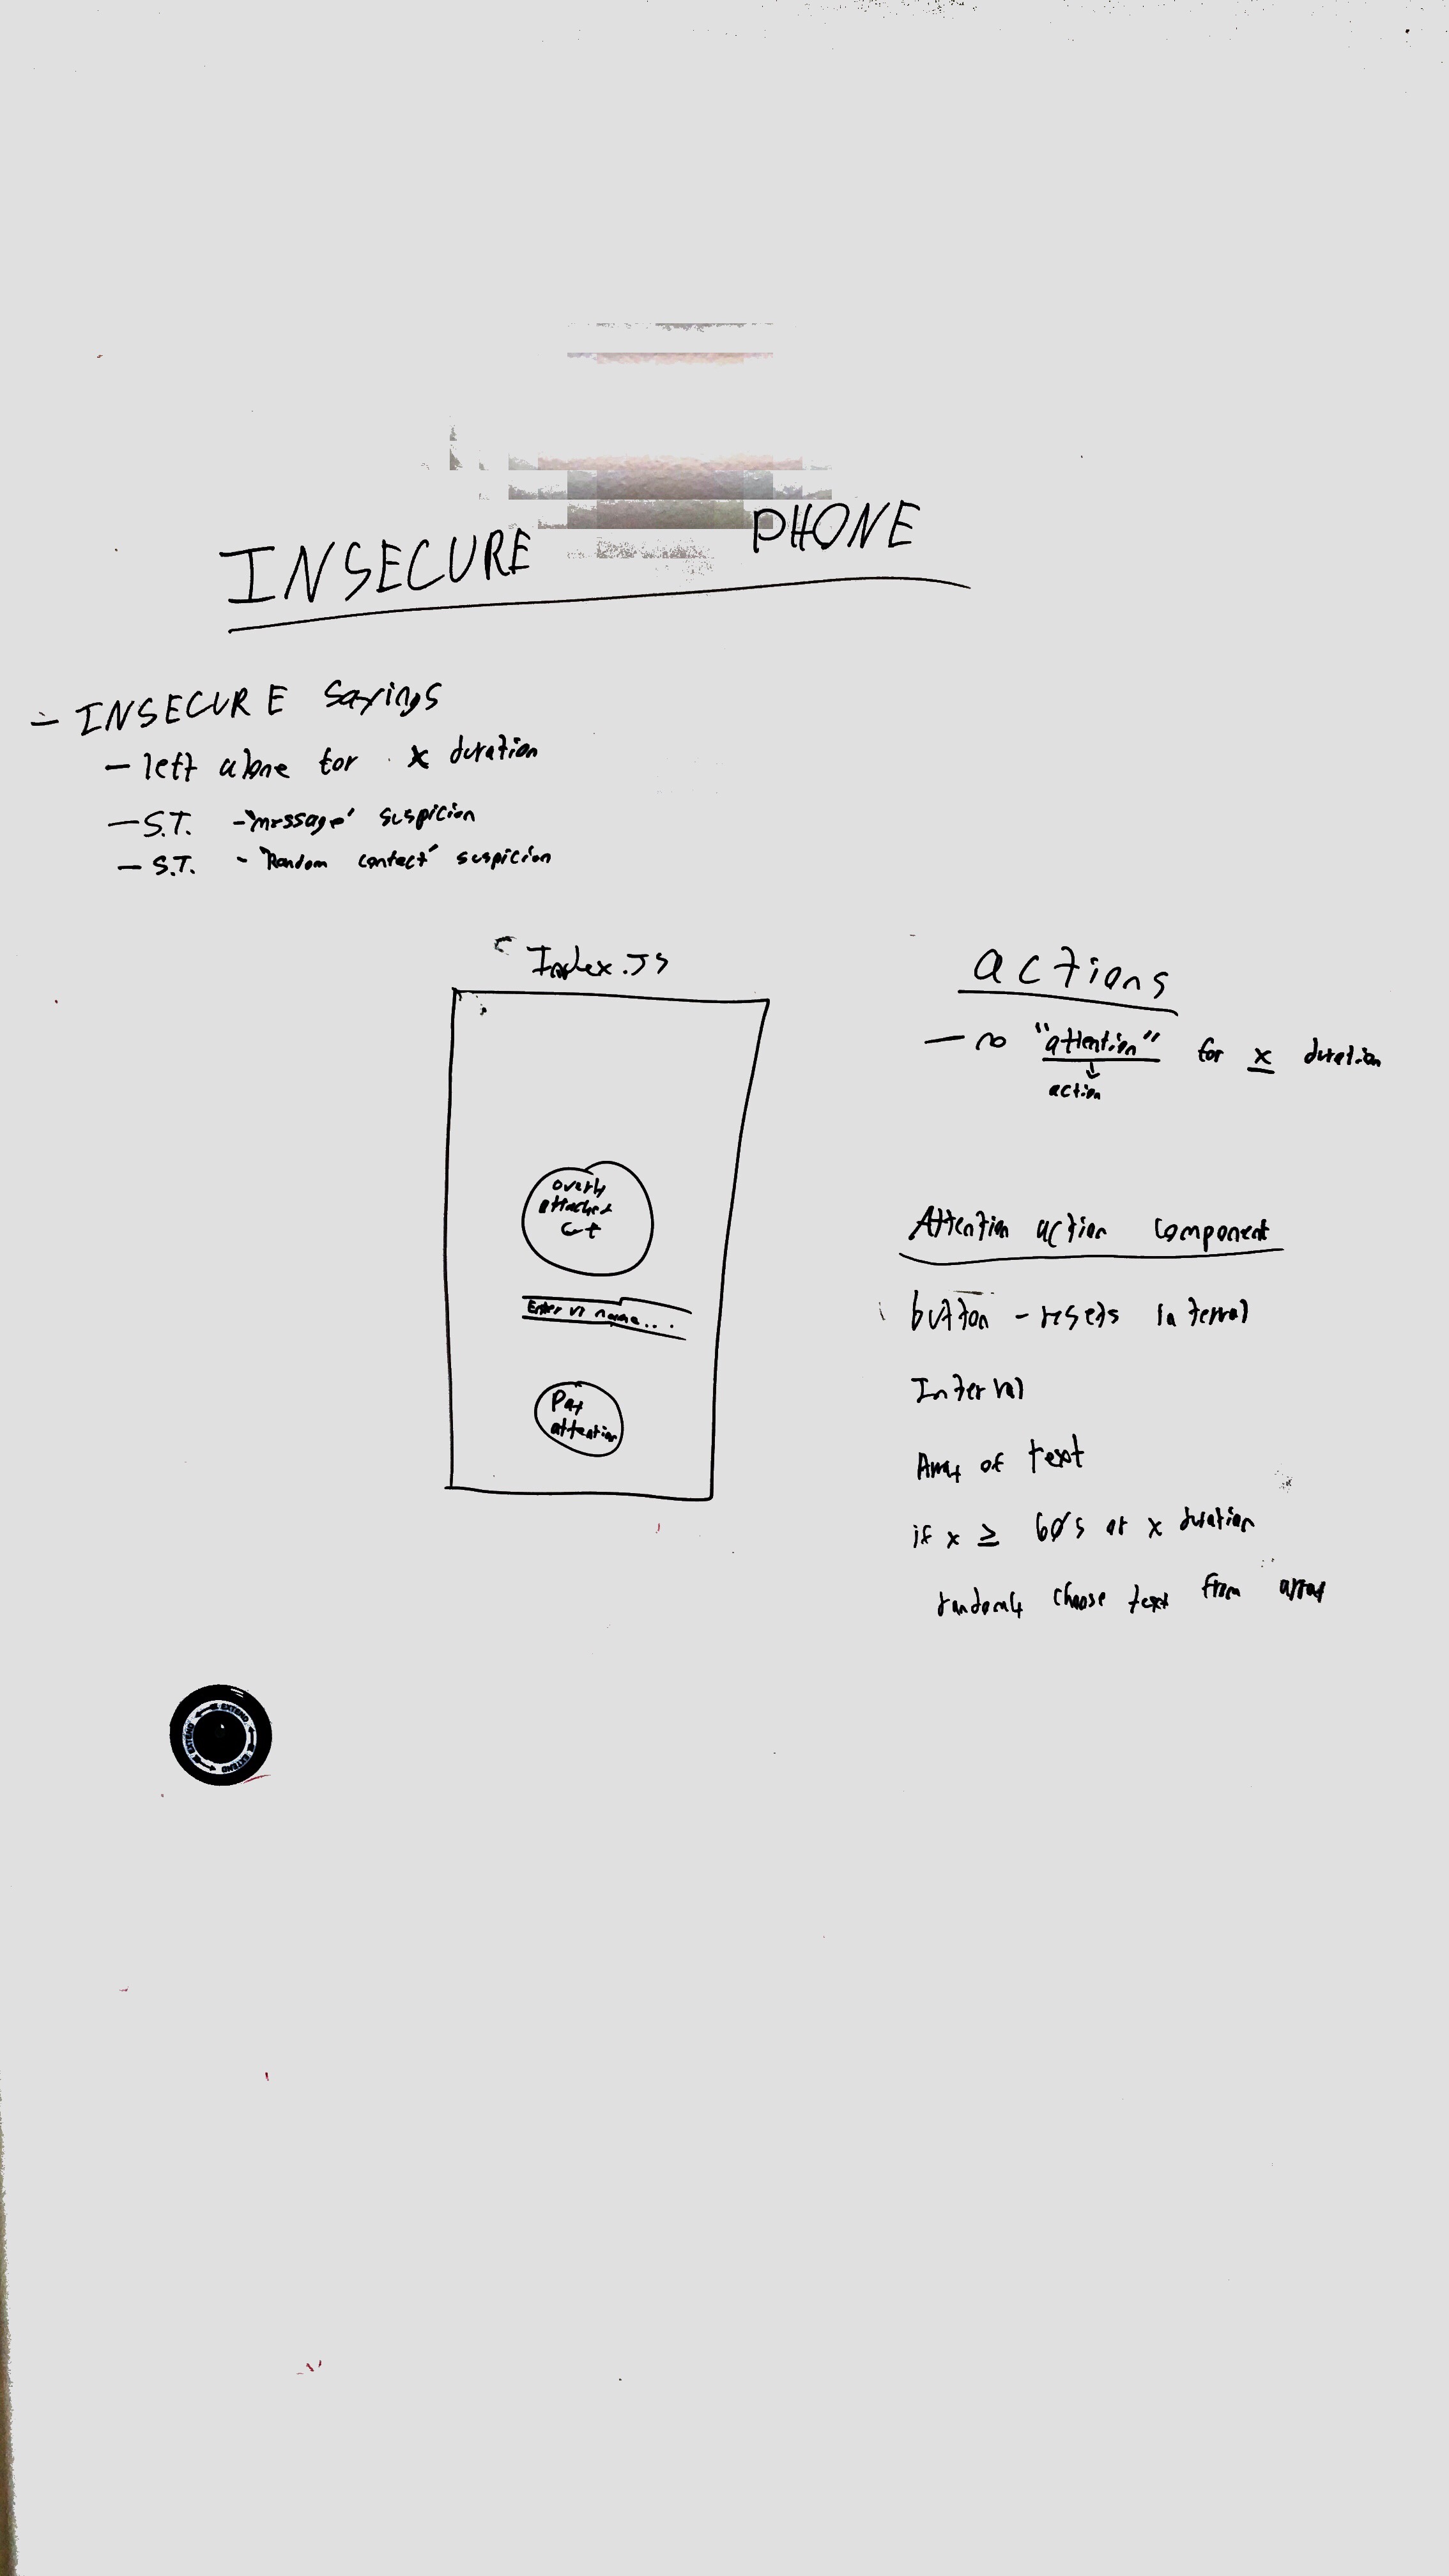 INSECURE PHONE
- INSECURE sayings
- left alone for x duration
- S.T. - "message" suspicion
- S.T. - "Random contact" suspicion
Index.JS
overly
attached
Enter name...
Pay
attention
actions
- no "attention" for x duration
action
Attention action component
button - resets interval
Interval
Array of text
if x ≥ 60s or x duration
randomly choose text from array
EXTEND EXTEND EXTEND